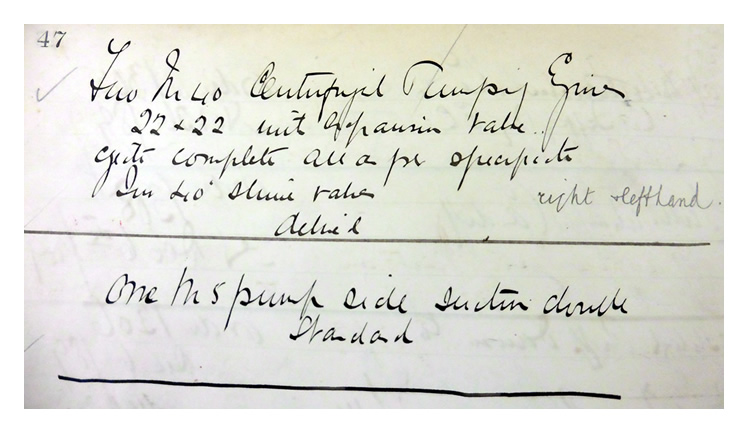 47
Two No 40 Centrifugal Pumping Engines
22 x 22 with expansion valve
complete all as per
Two 40" sluice valves
right & lefthand.
One No 5 pump side suction double
Standard